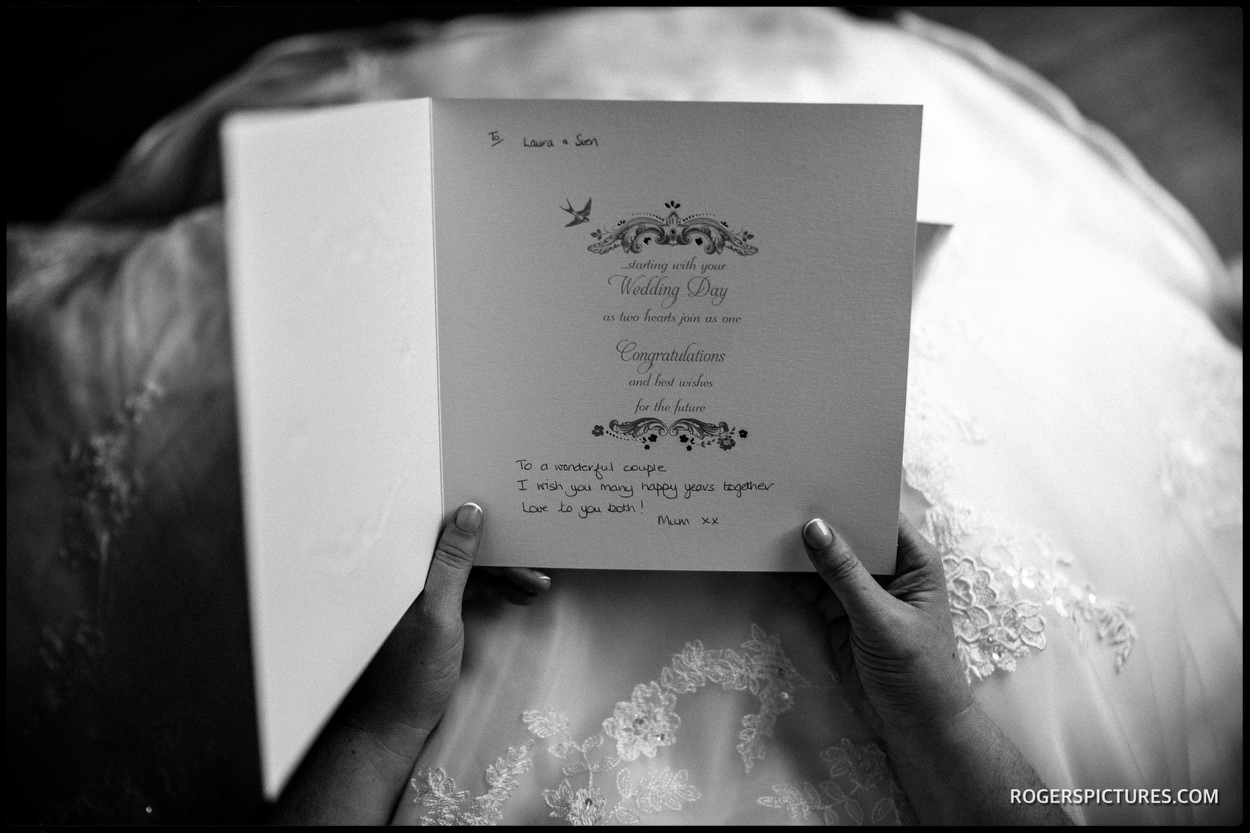 To Laura & Sven
...starting with your
Wedding Day
as two hearts join as one
Congratulations
and best wishes
for the future
To a wonderful couple
I wish you many happy years together
Love to you both!
Mum xx
ROGERSPICTURES.COM